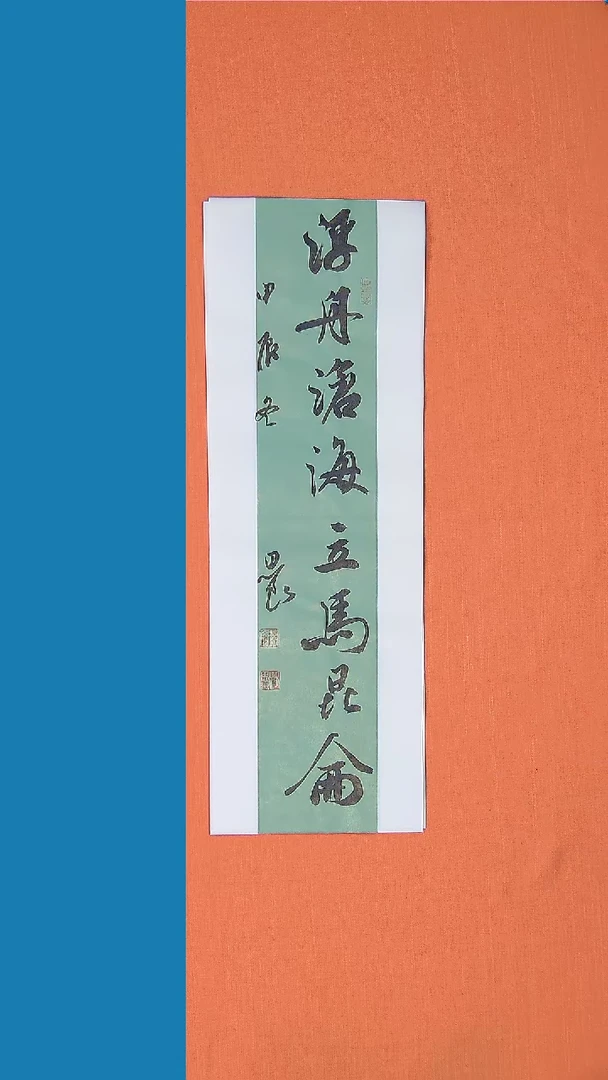 浮舟滄海立馬昆侖
甲辰冬